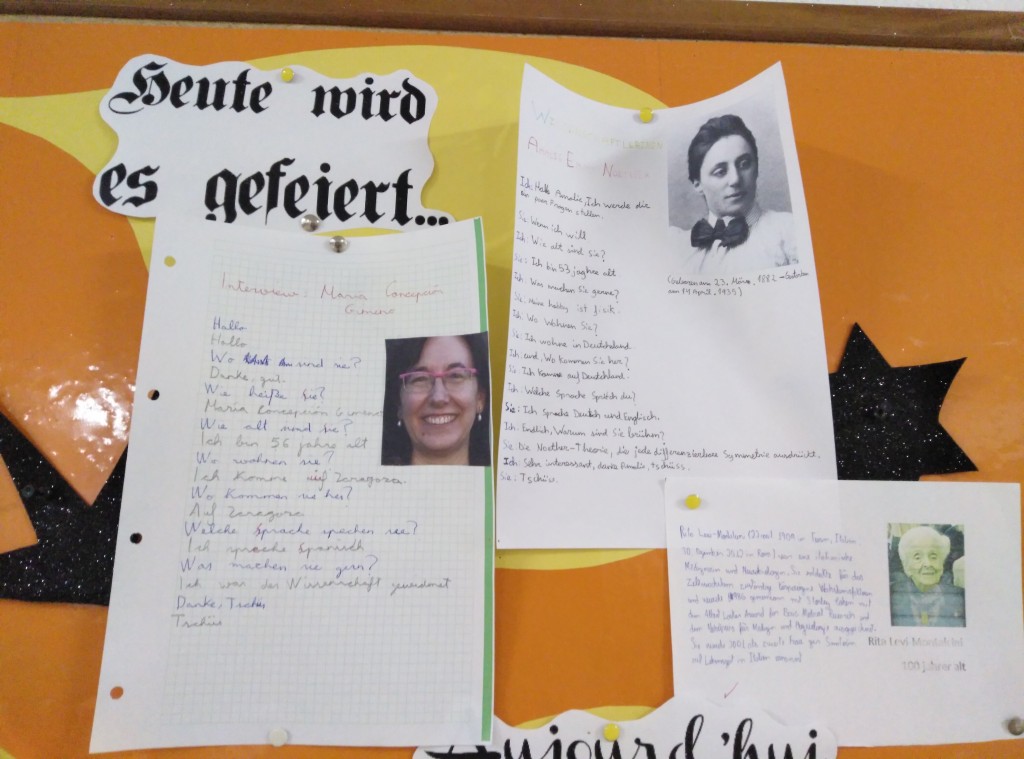 Heute wird
es gefeiert...
Interview: Maria Concepción
Gimeno
Hallo
Hallo
Wo sind sie?
Danke, gut.
Wie heiße Sie?
Maria Concepción Gimeno
Wie alt sind sie?
Ich bin 56 jahre alt
Wo wohnen sie?
Ich komme auf Zaragoza.
Wo kommen sie her?
Auf Zaragoza
Welche sprache sprechen sie?
Ich spreche Spanisch
Was machen sie gern?
Ich war der Wissenschaft gewidmet
Danke, Tschüs
Tschüs
Amalie Emmy Noether
Ich: Hallo Amalie, Ich werde die
ein paar Fragen stellen.
Sie: Wenn ich will
Ich: Wie alt sind Sie?
Sie: Ich bin 53 jaghre alt
Ich: Was machen Sie gerne?
Sie: Meine hobby ist fisik.
Ich: Wo Wohnen Sie?
Sie: Ich wohne in Deutchland.
Ich: und, Wo Kommen Sie her?
Sie: Ich Komme auf Deutchland.
Ich: Welche Sprache Sprich du?
Sie: Ich Spreche Deutch und Englisch.
Ich: Endlich, Warum sind Sie brühen?
Sie: Die Noether-Theorie, die jede differenzierbare Symmetrie ausdrückt.
Ich: Sehr interessant, danke Amalie, tschüss.
Sie: Tschüss.
(Geboren am 23. März, 1882 - Gestorben
am 14 April, 1935)
Rita Levi-Montalcini in Turin, Italien
in Rom) war eine italienische
Medizinerin und Neurobiologin. Sie
und wurde 1986 gemeinsam mit Stanley Cohen mit
dem Albert Lasker Award for Basic Medical Research und
dem Nobelpreis für Medizin und Physiologie ausgezeichnet.
Sie wurde 2001 als
auf Lebenszeit in Italien ernannt
Rita Levi Montalcini
100 Jahre alt
Aujourd'hui